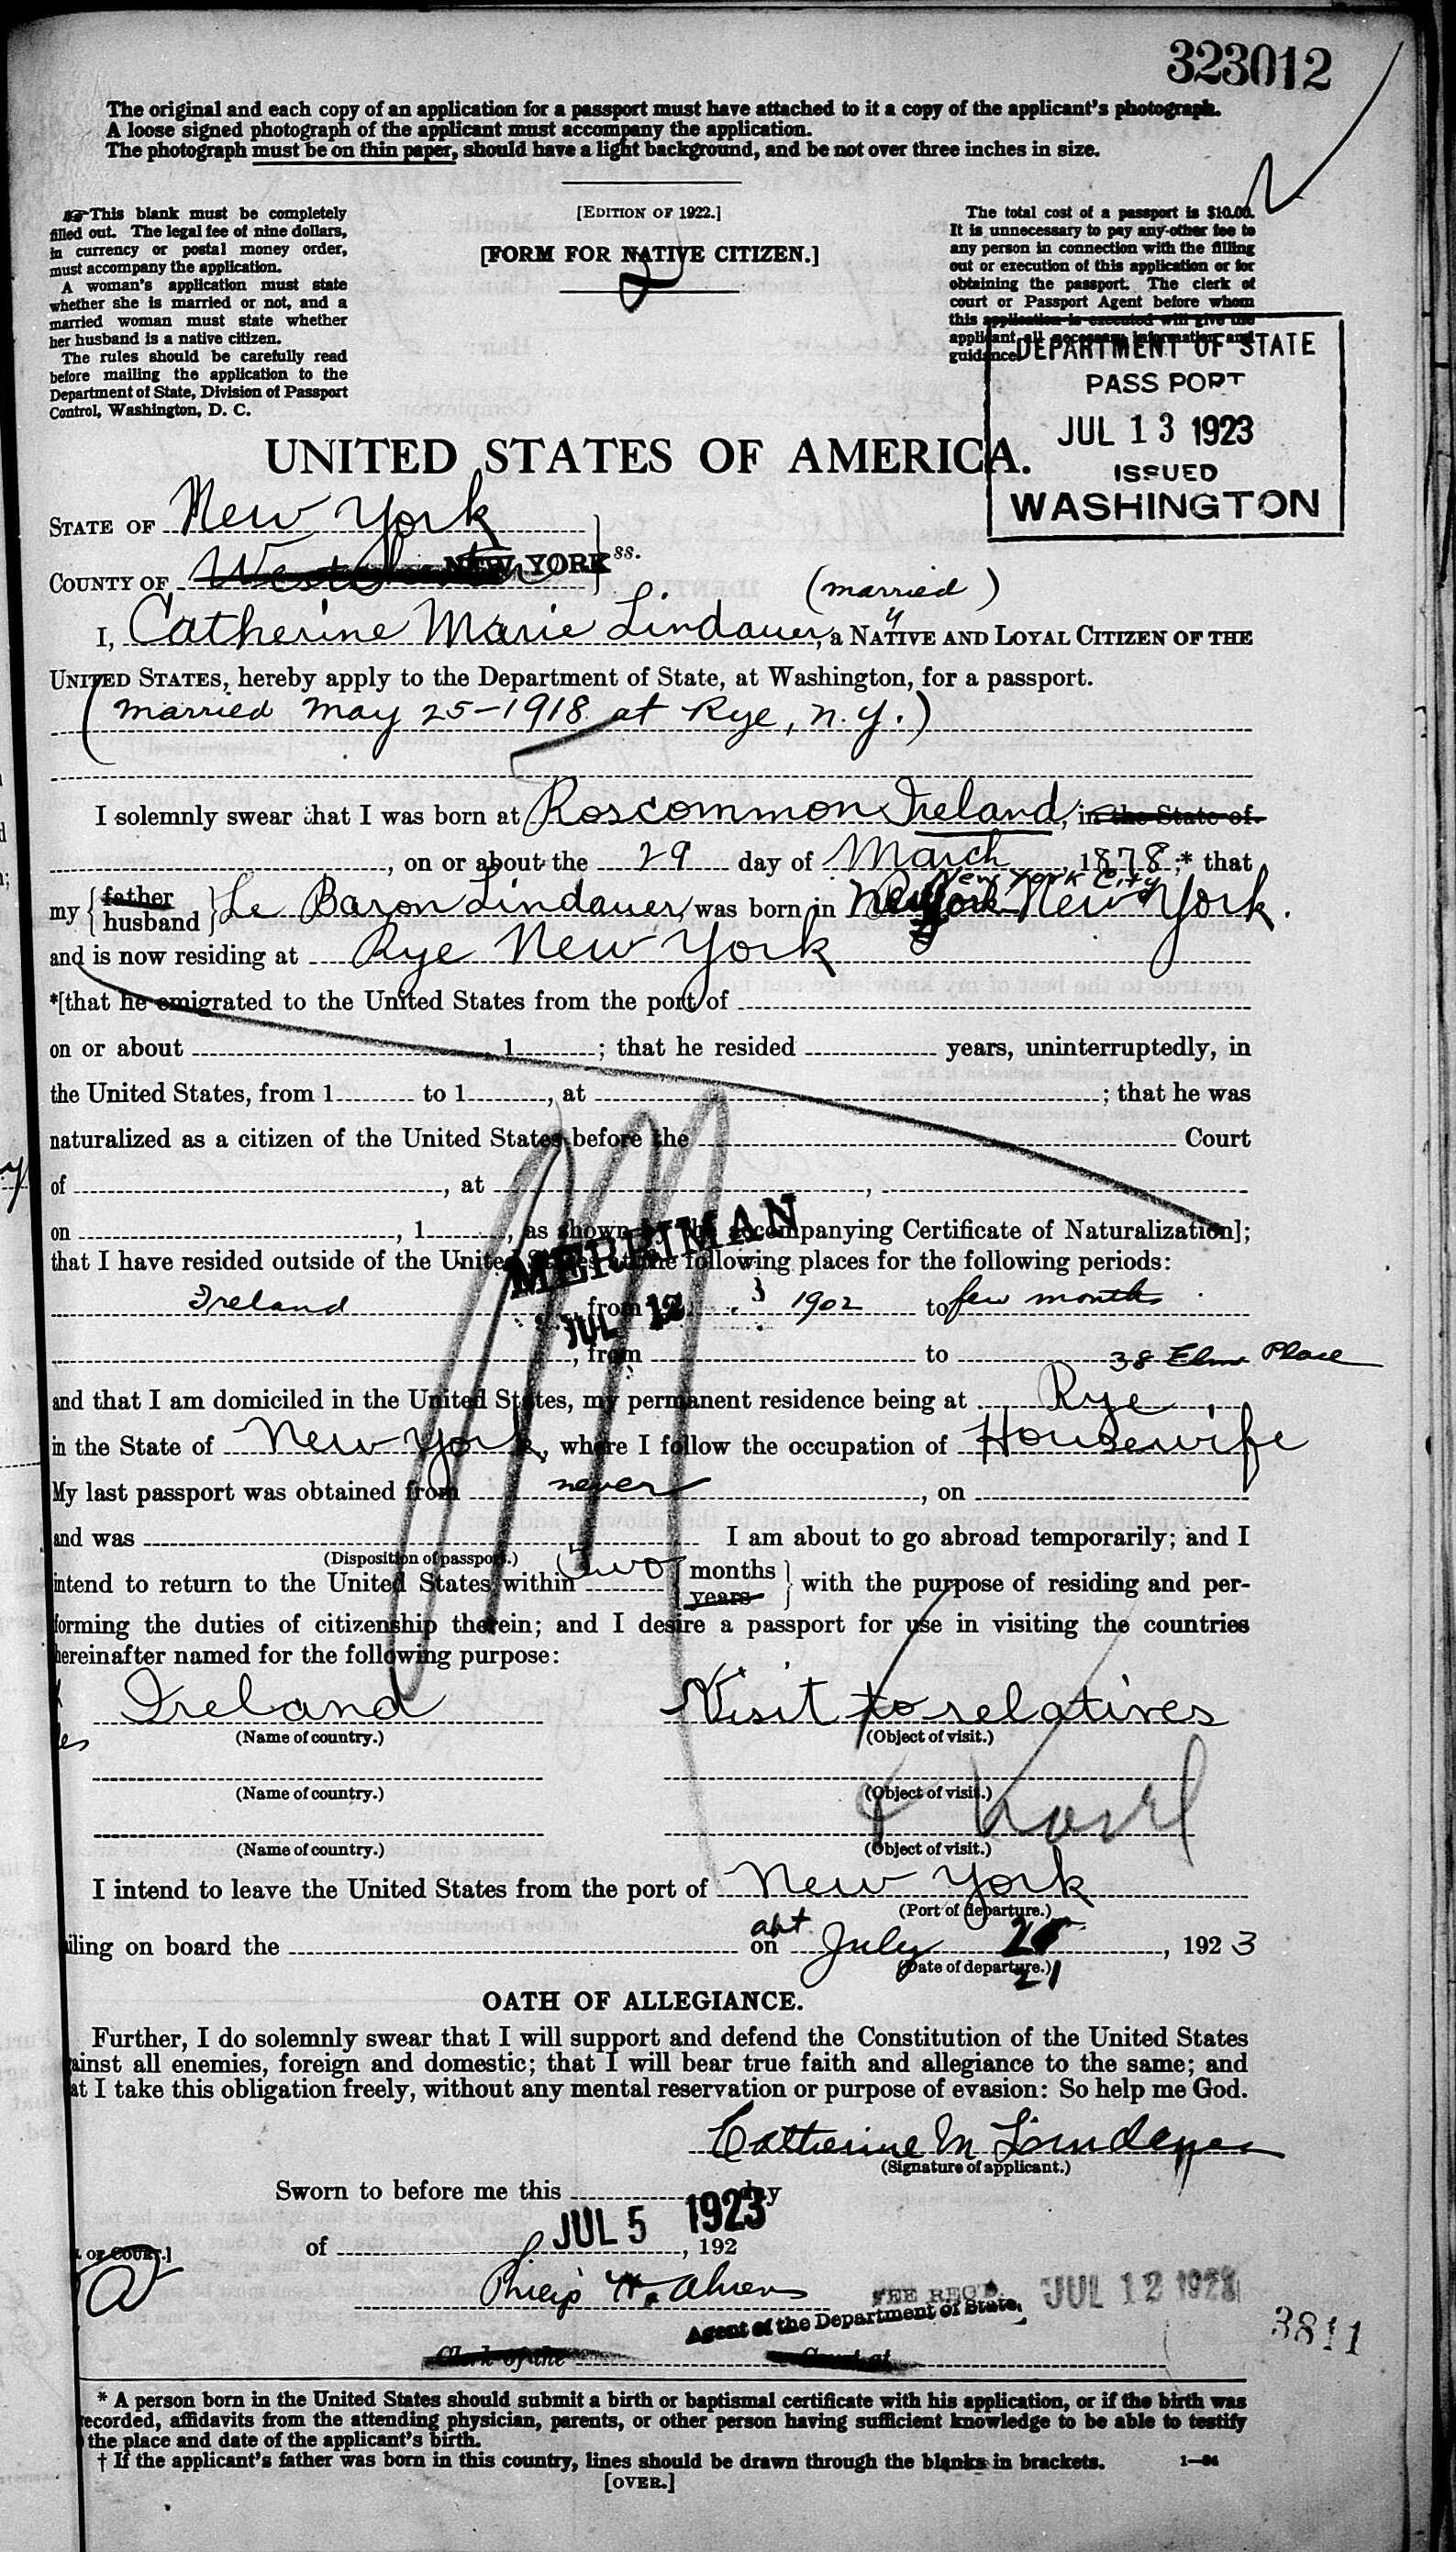 323012
The original and each copy of an application for a passport must have attached to it a copy of the applicant's photograph.
A loose signed photograph of the applicant must accompany the application.
The photograph must be on thin paper, should have a light background, and be not over three inches in size.
☞ This blank must be completely
filled out. The legal fee of nine dollars,
in currency or postal money order,
must accompany the application.
A woman's application must state
whether she is married or not, and a
married woman must state whether
her husband is a native citizen.
The rules should be carefully read
before mailing the application to the
Department of State, Division of Passport
Control, Washington, D. C.
[EDITION OF 1922.]
[FORM FOR NATIVE CITIZEN.]
The total cost of a passport is $10.00.
It is unnecessary to pay any other fee to
any person in connection with the filling
out or execution of this application or for
obtaining the passport. The clerk of
court or Passport Agent before whom
this application is executed will give the
applicant all necessary information and
guidance.
DEPARTMENT OF STATE
PASSPORT
JUL 13 1923
ISSUED
WASHINGTON
UNITED STATES OF AMERICA.
STATE OF New York
COUNTY OF Westchester NEW YORK ss.
(married)
I, Catherine Marie Lindauer, a NATIVE AND LOYAL CITIZEN OF THE
UNITED STATES, hereby apply to the Department of State, at Washington, for a passport.
(married May 25-1918 at Rye, N.Y.)
I solemnly swear that I was born at Roscommon Ireland, in the State of
, on or about the 29 day of March, 1878;* that
New York City
my { father husband } Le Baron Lindauer, was born in New York New York.
and is now residing at Rye New York
*[that he emigrated to the United States from the port of
on or about , 1 ; that he resided years, uninterruptedly, in
the United States, from 1 to 1 , at ; that he was
naturalized as a citizen of the United States before the Court
of , at ,
on , 1 , as shown by the accompanying Certificate of Naturalization];
MERRIMAN
that I have resided outside of the United States at the following places for the following periods:
Ireland , from 1902 to few months
JUL 12
, from to
38 Elm Place
and that I am domiciled in the United States, my permanent residence being at Rye,
in the State of New York, where I follow the occupation of Housewife
My last passport was obtained from never , on
and was I am about to go abroad temporarily; and I
(Disposition of passport.)
intend to return to the United States within two { months years } with the purpose of residing and per-
forming the duties of citizenship therein; and I desire a passport for use in visiting the countries
hereinafter named for the following purpose:
Ireland Visit to relatives
(Name of country.) (Object of visit.)
(Name of country.) (Object of visit.)
(Name of country.) (Object of visit.)
I intend to leave the United States from the port of New York
(Port of departure.)
iling on board the abt on July 21, 1923
(Date of departure.)
OATH OF ALLEGIANCE.
Further, I do solemnly swear that I will support and defend the Constitution of the United States
ainst all enemies, foreign and domestic; that I will bear true faith and allegiance to the same; and
at I take this obligation freely, without any mental reservation or purpose of evasion: So help me God.
Catherine M Lindauer
(Signature of applicant.)
Sworn to before me this day
of JUL 5 1923, 192
OF COURT.]
Philip H. Ahrens
FEE REC'D. JUL 12 1923
Agent of the Department of State.
3811
Clerk of the Court at
* A person born in the United States should submit a birth or baptismal certificate with his application, or if the birth was
recorded, affidavits from the attending physician, parents, or other person having sufficient knowledge to be able to testify
the place and date of the applicant's birth.
† If the applicant's father was born in this country, lines should be drawn through the blanks in brackets. 1—94
[OVER.]